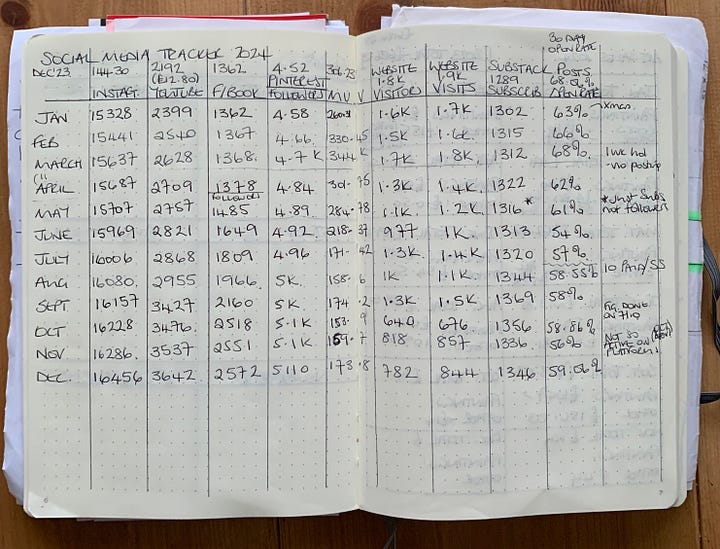 SOCIAL MEDIA TRACKER 2024
DEC'23 144.30 2192 (£12.80) 1362 4.52 306.23 WEBSITE 1.8K VISITORS WEBSITE 1.9K VISITS SUBSTACK 1289 SUBSCRIB 30 DAY OPEN RATE POSTS
INSTAG YOUTUBE F/BOOK PINTEREST FOLLOWERS M.V. V OPEN RATE
JAN 15328 2399 1362 4.58 1.6K 1.7K 1302 63% Xmas
FEB 15441 2540 1367 4.66 330.45 1.5K 1.6K 1315 66%
MARCH 15637 2628 1368 4.7K 344K 1.7K 1.8K 1312 68% 1 wk hol - no posting
APRIL 15687 2709 1378 4.84 301. 1.3K 1.4K 1322 62%
MAY 15707 2757 FOLLOWERS 1485 4.89 284.78 1.1K 1.2K 1316* 61% * Just Subs not followers
JUNE 15969 2821 1649 4.92 218.37 977 1K 1313 54%
JULY 16006 2868 1809 4.96 171.42 1.3K 1.4K 1320 57%
AUG 16080 2955 1966 5K 158.6 1K 1.1K 1344 58.55% 10 PAID/SS
SEPT 16157 3427 2160 5K 174.2 1.3K 1.5K 1369 58%
FIG. DONE ON 7th
OCT 16228 3476 2518 5.1K 153.9 640 676 1356 58.86%
NOV 16286 3537 2551 5.1K 159.7 818 857 1336 56% NOT SO ACTIVE ON PLATFORM!
DEC. 16456 3642 2572 5110 173.8 782 844 1346 59.06%
6
7